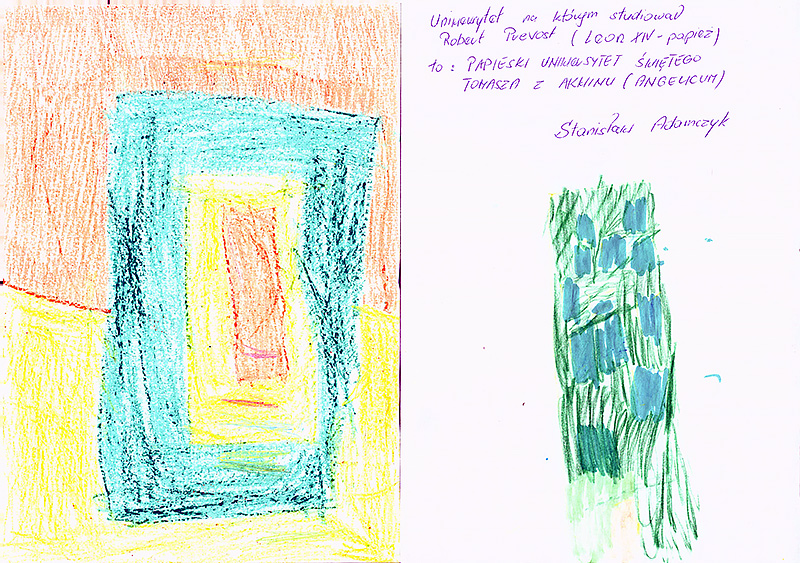 Uniwersytet na którym studiował
Robert Prevost (Leon XIV - papież)
to : PAPIESKI UNIWERSYTET ŚWIĘTEGO
TOMASZA Z AKWINU (ANGELICUM)
Stanisław Adamczyk